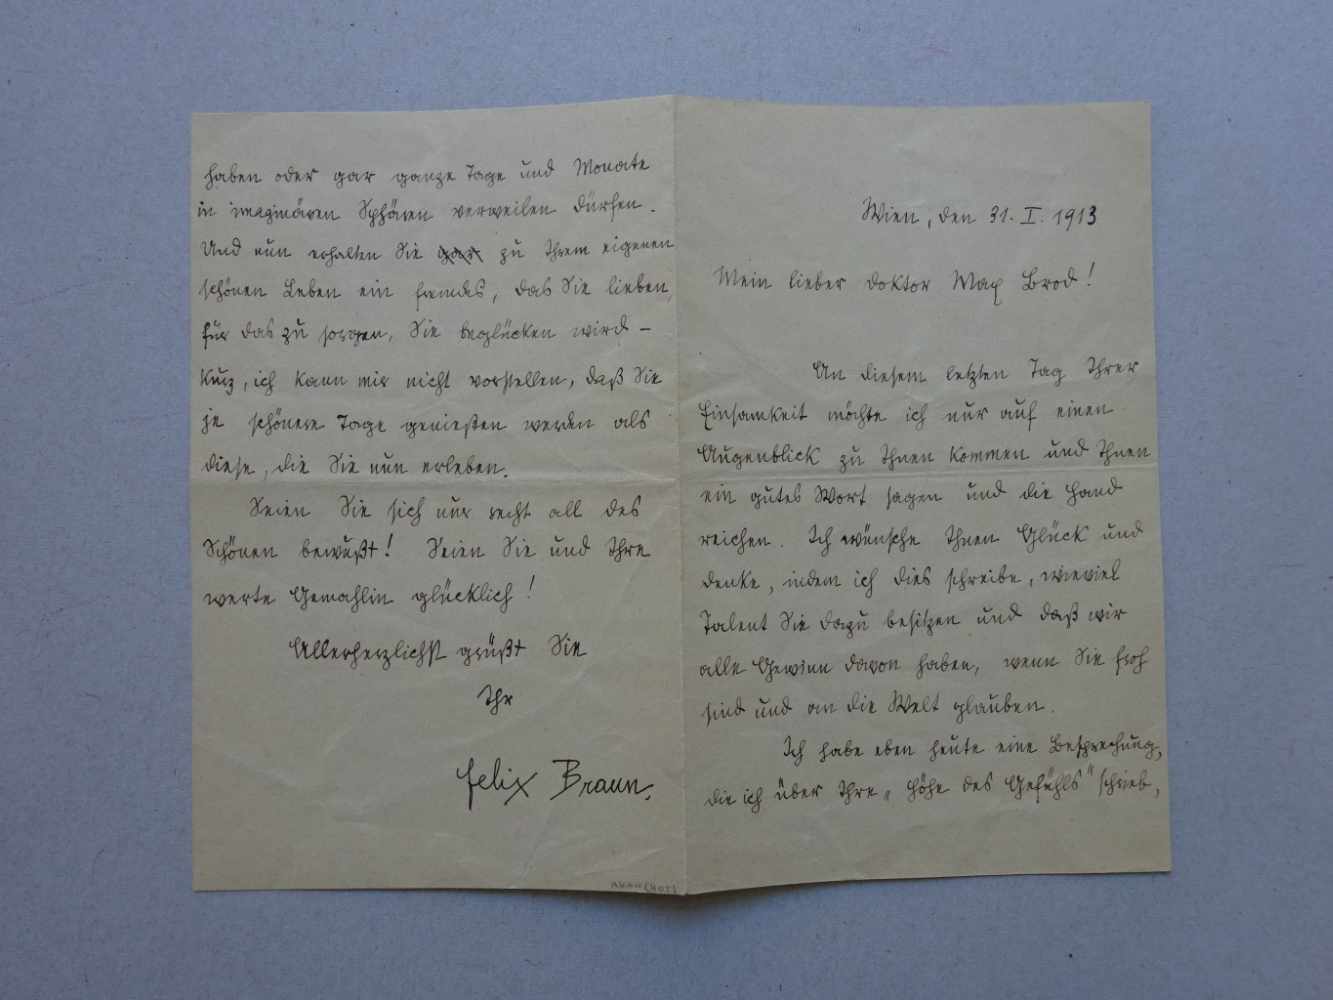 Wien, den 31. I. 1913
Mein lieber Doktor Max Brod!
An diesem letzten Tag Ihrer
Einsamkeit möchte ich nur auf einen
Augenblick zu Ihnen kommen und Ihnen
ein gutes Wort sagen und die Hand
reichen. Ich wünsche Ihnen Glück und
denke, indem ich dies schreibe, wieviel
Talent Sie dazu besitzen und daß wir
alle Gewinn davon haben, wenn Sie froh
sind und an die Welt glauben.
Ich habe eben heute eine Besprechung,
die ich über Ihre „Höhe des Gefühls" schrieb,
haben oder gar ganze Tage und Monate
in imaginären Sphären verweilen dürfen.
Und nun erhalten Sie gar zu Ihrem eigenen
schönen Leben ein fremdes, das Sie lieben,
für das zu sorgen, Sie beglücken wird –
kurz, ich kann mir nicht vorstellen, daß Sie
je schönere Tage genießen werden als
diese, die Sie nun erleben.
Seien Sie sich nur recht all des
Schönen bewußt! Seien Sie und Ihre
werte Gemahlin glücklich!
Allerherzlichst grüßt Sie
Ihr
Felix Braun.